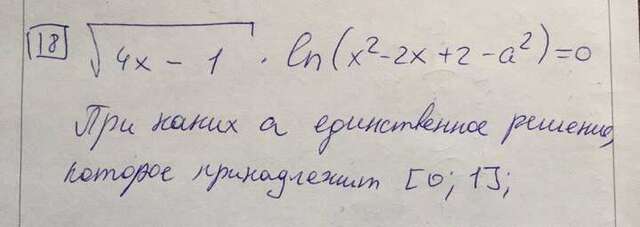 18 √(4x - 1) · ln(x²-2x+2-a²)=0
При каких a единственное решение,
которое принадлежит [0; 1];